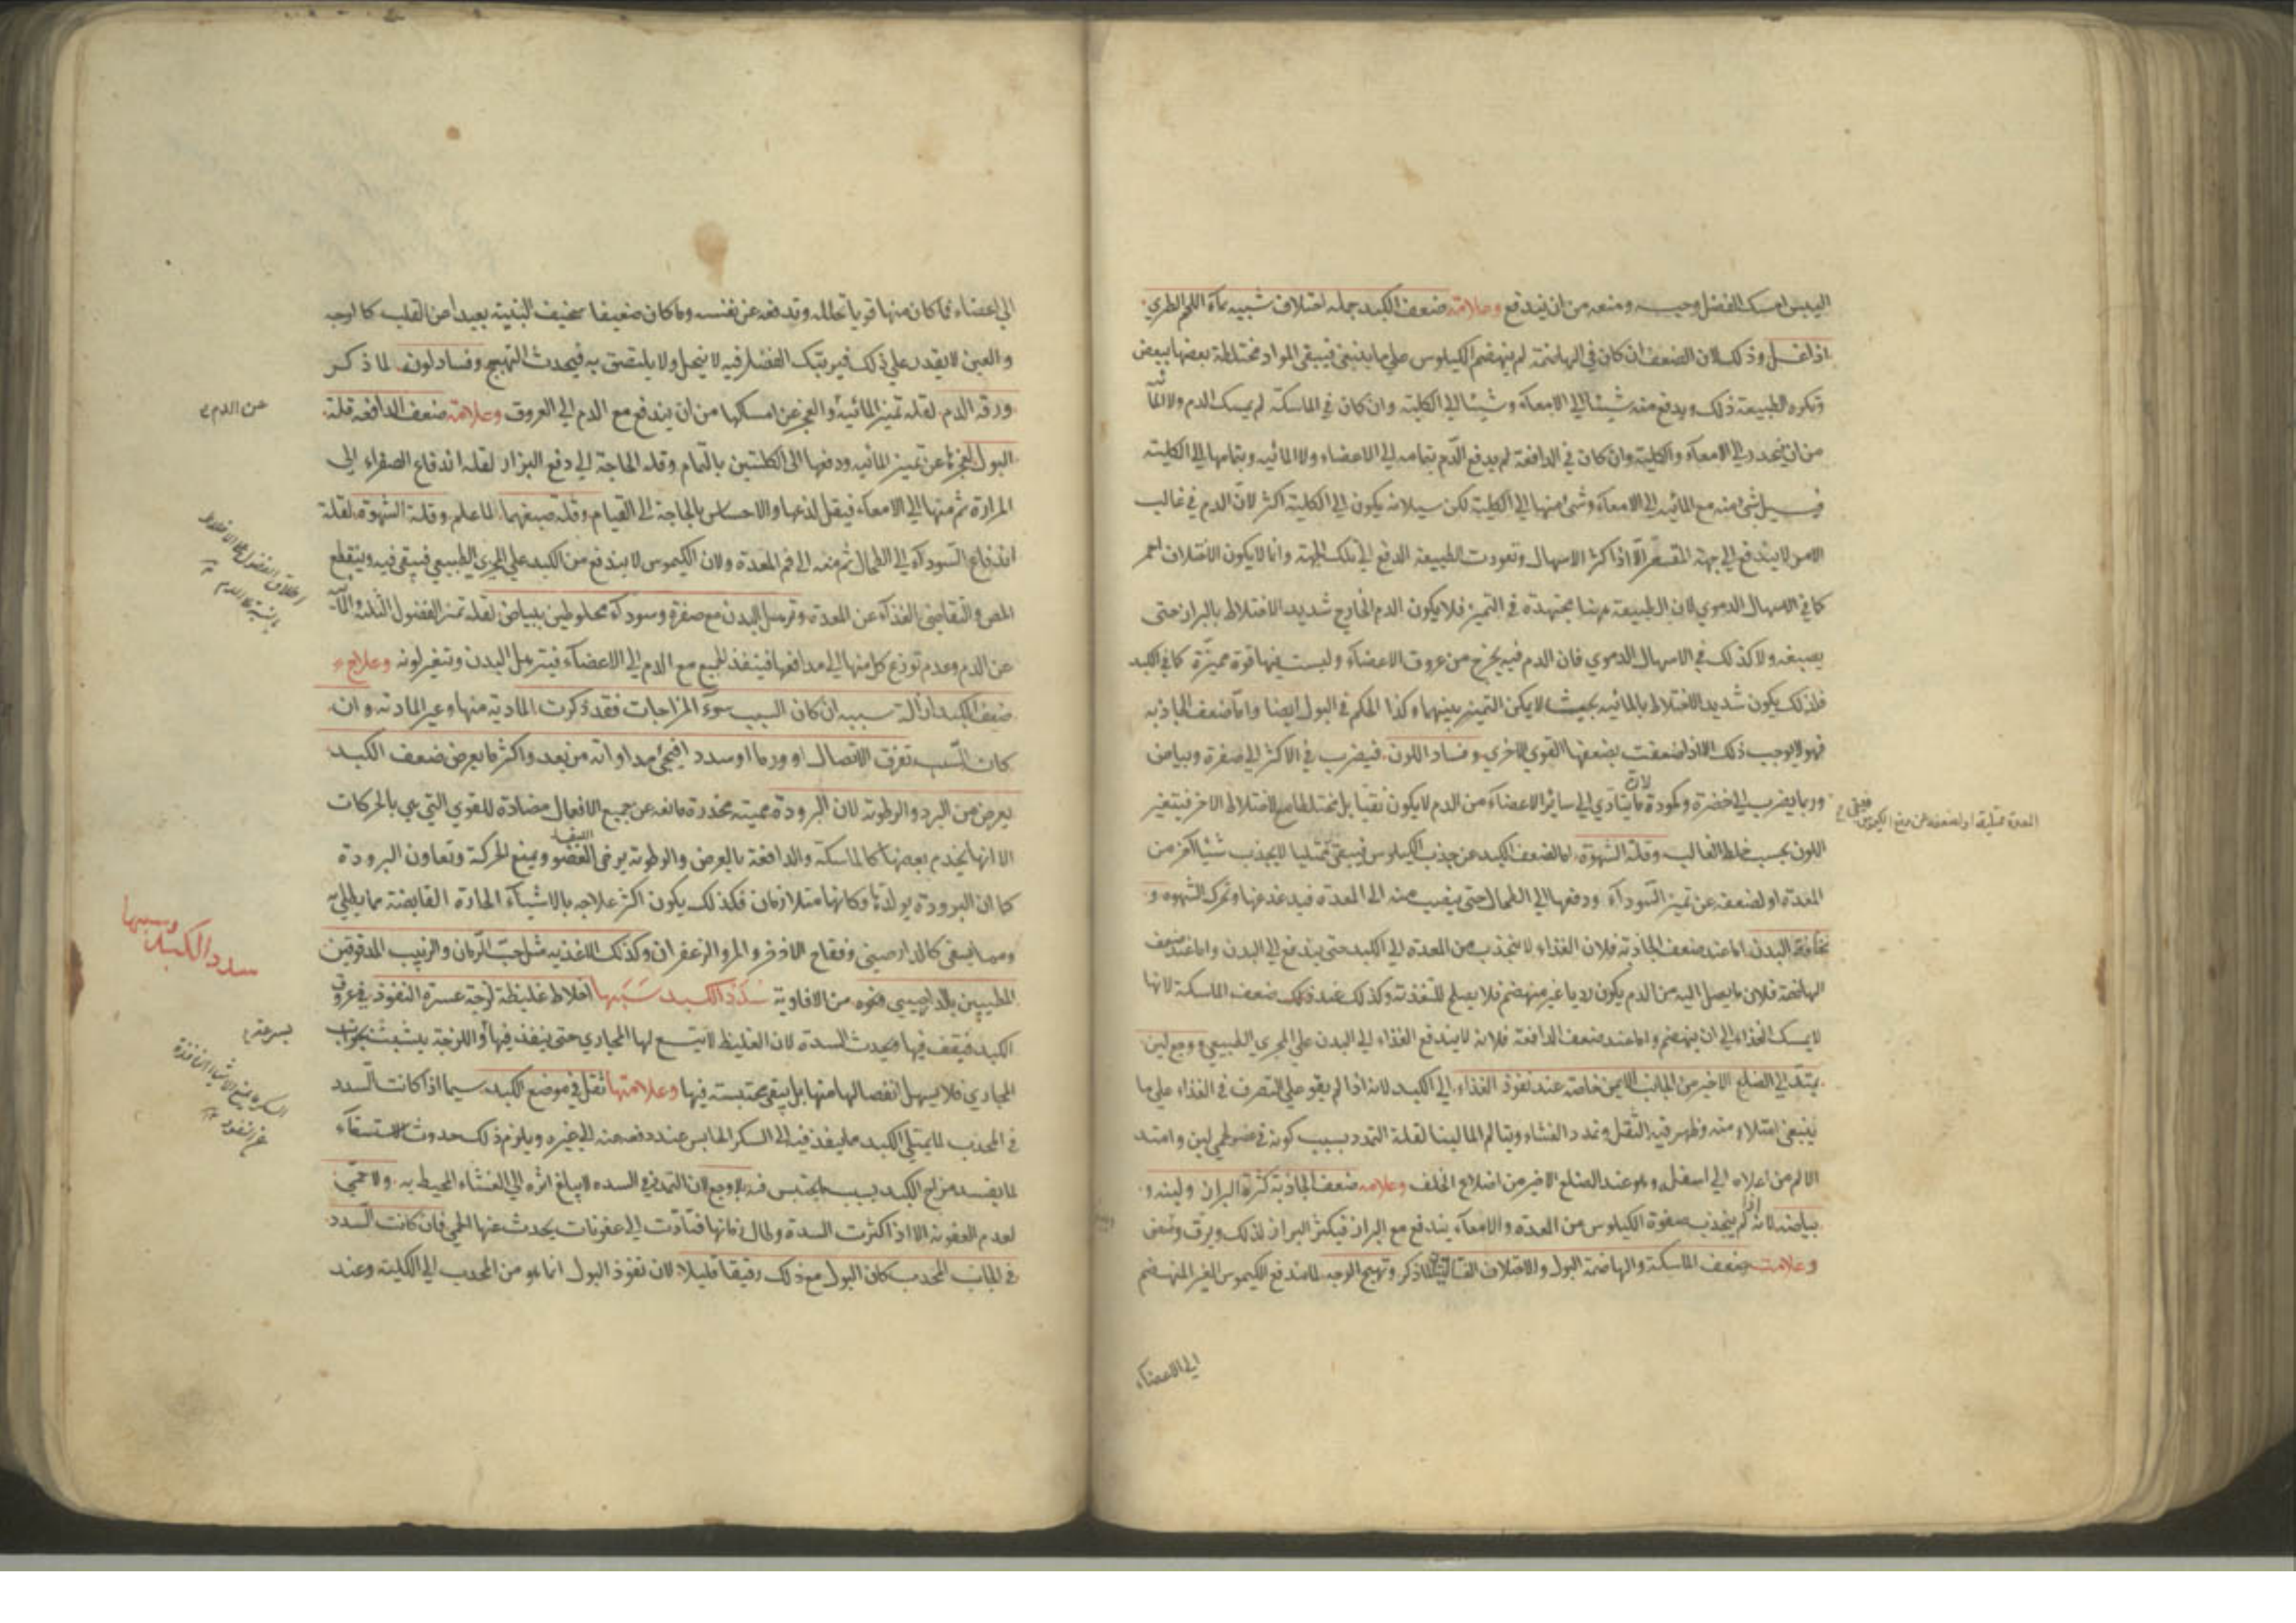 اليبس امسك الفضل وحبسه ومنعه من ان يندفع وعلامة ضعف الكبد جملة اختلاف شبيه بماء اللحم الطري
اذا غسل وذلك لان الضعف ان كان في الهاضمة لم ينهضم الكيلوس على ما ينبغي فيبقى المواد مختلطة بعضها ببعض
وتكره الطبيعة ذلك ويدفع منه شيئا الى الامعاء وشيئا الى الكلية وان كان في الماسكة لم يمسك الدم ولا المائية
من ان ينحدر الى الامعاء والكلية وان كان في الدافعة لم يدفع الدم بتمامه الى الاعضاء ولا المائية وبتمامها الى الكلية
فيسيل شئ منه مع المائية الى الامعاء وشئ منها الى الكلية لكن سيلانه يكون الى الكلية اكثر لان الدم في غالب
الامر لا يندفع الى جهة المقعر الا اذا كثر الاسهال وتعودت الطبيعة الدفع الى تلك الجهة وانما لا يكون الاختلاف احمر
كما في الاسهال الدموي لان الطبيعة ههنا مجتهدة في التميز فلا يكون الدم الخارج شديد الاختلاط بالبراز حتى
يصبغه ولا كذلك في الاسهال الدموي فان الدم فيه يخرج من عروق الاعضاء وليست فيها قوة مميزة كما في الكبد
فلذلك يكون شديد الاختلاط بالمائية بحيث لا يمكن التميز بينهما وكذا الحكم في البول ايضا واما ضعف الجاذبة
فهو لا يوجب ذلك الا اذا ضعفت بضعفها القوى الاخرى وفساد اللون فيضرب في الاكثر الى صفرة وبياض
وربما يضرب الى خضرة وكمودة لان ما يتادى الى سائر الاعضاء من الدم لا يكون نقيا بل مختلطا مع الاخلاط الاخر فيتغير
اللون بحسب خلط الغالب وقلة الشهوة اما لضعف الكبد عن جذب الكيلوس فيبقى ممتليا لا يجذب شيئا آخر من
المعدة او لضعفه عن تميز السوداء ودفعها الى الطحال حتى ينصب منه الى المعدة فيدغدغها وتحرك الشهوة و
نحافة البدن اما عند ضعف الجاذبة فلان الغذاء لا ينجذب من المعدة الى الكبد حتى يندفع الى البدن واما عند ضعف
الهاضمة فلان ما يصل اليه من الدم يكون رديا غير منهضم فلا يصلح للتغذية وكذلك عند ضعف الماسكة لانها
لا يمسك الغذاء الى ان ينهضم واما عند ضعف الدافعة فلانه لا يندفع الغذاء الى البدن على المجرى الطبيعي ووجع لين
يمتد الى الضلع الاخير من الجانب الايمن خاصة عند نفوذ الغذاء الى الكبد لانه اذا لم يقو على التصرف في الغذاء على ما
ينبغي امتلاء منه وظهر فيه الثقل وتمدد الغشاء ويتالم الما لينا لقلة التمدد بسبب كونه في ... لين وامتد
الالم من اعلاه الى اسفله وهو عند الضلع الاخير من اضلاع الخلف وعلامة ضعف الجاذبة كثرة البراز ولينه و
بياضه لانه اذا لم ينجذب صفوة الكيلوس من المعدة والامعاء يندفع مع البراز فيكثر البراز لذلك ويرق ويبيض
وعلامة ضعف الماسكة والهاضمة البول والاختلاف الغساليين لما ذكر وتهيج الوجه لما يندفع الكيموس الغير المنهضم
الى الاعضاء
المعدة ممتلية او لضعفه عن دفع الكيموس فيبقى
الى اعضاء فما كان منها قويا تحلله وتدفعه عن نفسه وما كان ضعيفا سخيف البنية بعيدا من القلب كالوجه
والعين لا يقدر على ذلك فيرتبك الفضل فيه لا ينحل ولا يلتصق به فيحدث التهيج وفساد لونه لما ذكر
ورقة الدم لقلة تميز المائية والعجز عن امسكها من ان يندفع مع الدم الى العروق وعلامة ضعف الدافعة قلة
البول لعجزها عن تميز المائية ودفعها الى الكلتين بالتمام وقلة الحاجة الى دفع البراز لقلة اندفاع الصفراء الى
المرارة ثم منها الى الامعاء فيقل لذعها والاحساس بالحاجة الى القيام وقلة صبغهما لما علم وقلة الشهوة لقلة
اندفاع السوداء الى الطحال ثم منه الى فم المعدة ولان الكيموس لا يندفع من الكبد على المجرى الطبيعي فيبقى فيه وينقطع
المص والتقاضي الغذاء عن المعدة وترهل البدن مع صفرة وسوداء مخلوطين ببياض لقلة تميز الفضول الثلثة المائية
عن الدم وعدم توزع كل منها الى مدافعها فينفذ الجميع مع الدم الى الاعضاء فيترهل البدن وتتغير لونه وعلاج
ضعف الكبد ازالة سببه ان كان السبب سوء المزاجات فقد ذكرت المادية منها وغير المادية وان
كان السبب تفرق الاتصال او ورما او سددا فيجئ مداواته من بعد واكثر ما يعرض ضعف الكبد
يعرض من البرد والرطوبة لان البرودة مميتة مخدرة مانعة عن جميع الافعال مضادة للقوى التي هي بالحركات
الا انها يخدم بعضها كالماسكة والدافعة بالعرض والرطوبة يرخى العضو ويمنع الحركة وتعاون البرودة
كما ان البرودة يولدها وكانها متلازمان فكذلك يكون اكثر علاجه بالاشياء الحارة القابضة مما يطلى به
ومما يسقى كالدارصيني وفقاح الاذخر والمر والزعفران وكذلك الاغذية مثل حب الرمان والزبيب المدقوقين
المطيبين بالدارصيني ونحوه من الافاوية سدد الكبد سببها اخلاط غليظة لزجة عسرة النفوذ في عروق
الكبد فيقف فيها فيحدث السدة لان الغليظ لا يتسع لها المجاري حتى ينفذ فيها واللزجة يتشبث بجوانب
المجاري فلا يسهل انفصالها منها بل يبقى محتبسة فيها وعلامتها ثقل في موضع الكبد سيما اذا كانت السدد
في المحدب لما يمتلى الكبد مما ينفذ فيه الى السكر الحابس عند دفعه منه الى غيره ويلزم ذلك حدوث الاستسقاء
لما يفسد مزاج الكبد بسبب ما يحتبس فيه بلا وجع لان التمدد في السدة لا يبلغ اثره الى الغشاء المحيط به ولا حمى
لعدم العفونة الا اذا كثرت السدة وطال زمانها فتادت الى عفونات يحدث عنها الحمى فان كانت السدد
في الجانب المحدب كان البول مع ذلك رقيقا قليلا لان نفوذ البول انما هو من المحدب الى الكلية وعند
عن الدم
سدد الكبد وسببها